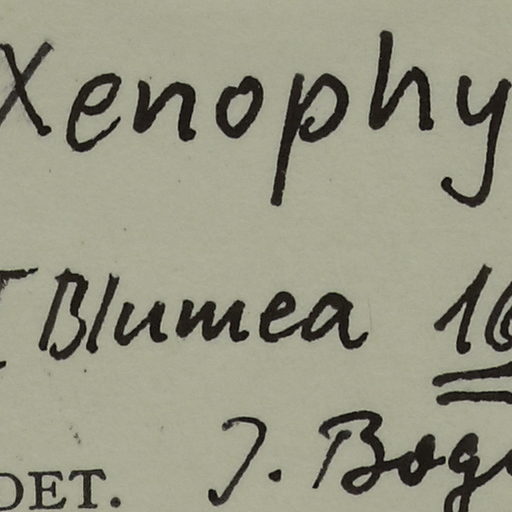 Xenophy
[Blumea 16
DET. J. Bog